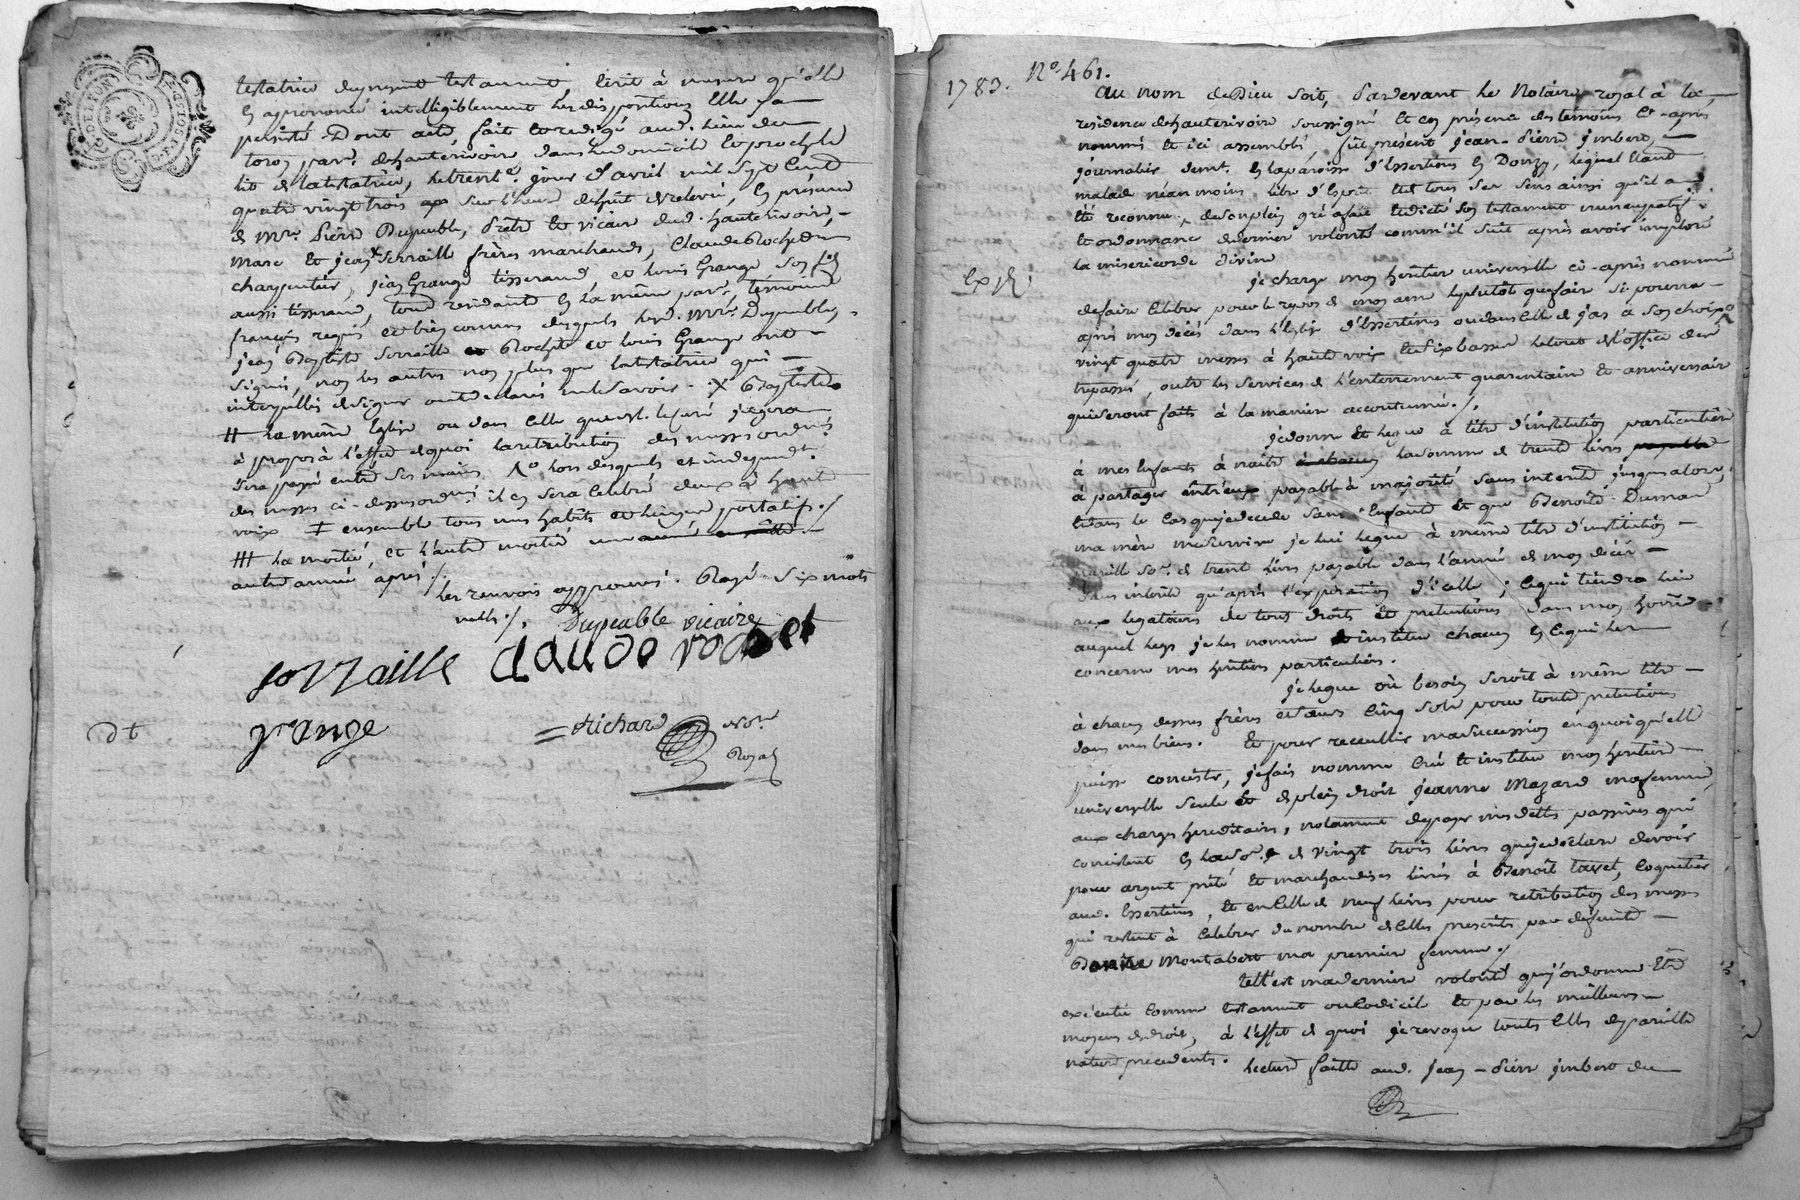 testatrice du present testament, écrit à mesure qu'elle
en a prononcé intelligiblement les dispositions Elle y a
persisté. Dont acte fait et redigé aud. lieu du
toron par. d'hauterivoire, dans le domicile et proche le
lit de la testatrice, le trente. jour d'avril mil sept cent
quatre vingt trois sur l'heure de huit de relevée, En présence
de Mre. Pierre Dupeuble, Prêtre et vicaire dud. hauterivoire, -
Marc et jean Serraille frères marchands, Claude Rochet
charpentier, jean Grange tisserand et louis Grange son fils
aussi tisserand, tous residants en la même par. témoins
françois requis et bien connus desquels led. Mre. Dupeuble, -
jean Baptiste Serraille Rochet et louis Grange ont
signés, non les autres non plus que la testatrice qui -
interpellés de signer ont déclarés ne le savoir - X Baptiste
# la même Eglise ou dans celle que led. curé jugera
à propos à l'effet de quoi la retribution des messes ordres
sera payé entre ses mains, hors desquels et independt.
des messes ci-dessus ordres il en sera celebré deux à haute
voix ‡ ensemble tous mes habits et linges portatifs ./
# la moitié, et l'autre moitié une année ensuitte. -
autre année après ./
les renvois approuvés. Rayé six mots
nulls ./. Dupeuble vicaire
serraille Claude rochet
grange
= Richard Nore
Royal
dt
1783. No. 461.
Au nom de Dieu soit, Pardevant le Notaire royal à la
residence d'hauterivoire soussigné et en présence des temoins ci-après
nommés et ici assemblés fut présent jean-Pierre jmbert, -
journalier demt. en la paroisse d'Essertines en Donzy, lequel étant
malade néanmoins libre d'Esprit et de tous ses sens ainsi qu'il a
été reconnu, de son plein gré a fait et dicté son testament nuncupatif
et ordonnance de derniere volonté comm'il suit après avoir imploré
la misericorde divine
Exp
je charge mon heritier universelle ci-après nommée
de faire celebrer pour le repos de mon ame le plutôt que faire se pourra -
après mon décès dans l'Eglise d'Essertines ou dans celle de jas a son choix
vingt quatre messes à haute voix, et six basses le tout de l'office des
trepassés, outre les services de l'enterrement quarantaine et anniversaire
qui seront faits à la maniere accoutumée ./.
je donne et legue à titre d'institution particulière
à mes enfants à naitre à chacun la somme de trente livres payable
à partager entr'eux payable à majorité sans interêts jusques alors,
et dans le cas que je decede sans Enfants et que Benoîte Dumas
ma mère me survive je lui legue à même titre d'institution -
pareille so. de trente livres payable dans l'année de mon décès -
sans interêt qu'après l'expiration d'icelle ; ce qui tiendra lieu
aux legataires de tous droits et pretentions dans mon hoirie
auquel legs je les nomme et institue chacun en ce qui les
concerne mes heritiers particuliers.
je legue où besoin seroit à même titre -
à chacun de mes frères et sœurs cinq sols pour toutes pretentions
dans mes biens. Et pour recueillir ma succession en quoi qu'elle
puisse concister, je fais nomme créé et institue mon heritière -
universelle seule et de plein droit jeanne Mazard ma femme,
aux charges hereditaires, notamment de payer mes dettes passives qui
concistent en la so. de vingt trois livres que je déclare devoir
pour argent prêté et marchandises livrés à Benoît tavel, coquetier
aud. Essertines, et en celle de neuf livres pour retribution des messes
qui restent à celebrer du nombre de celles prescrits par defunte -
Benoite Montabert ma premiere femme ./
tell'est ma derniere volonté que j'ordonne Etre
exécutée comme testament ou codicile et par les meilleurs -
moyens de droit, à l'effet de quoi je revoque touts ceux de pareille
nature precedents. Lecture faitte aud. jean-Pierre jmbert du